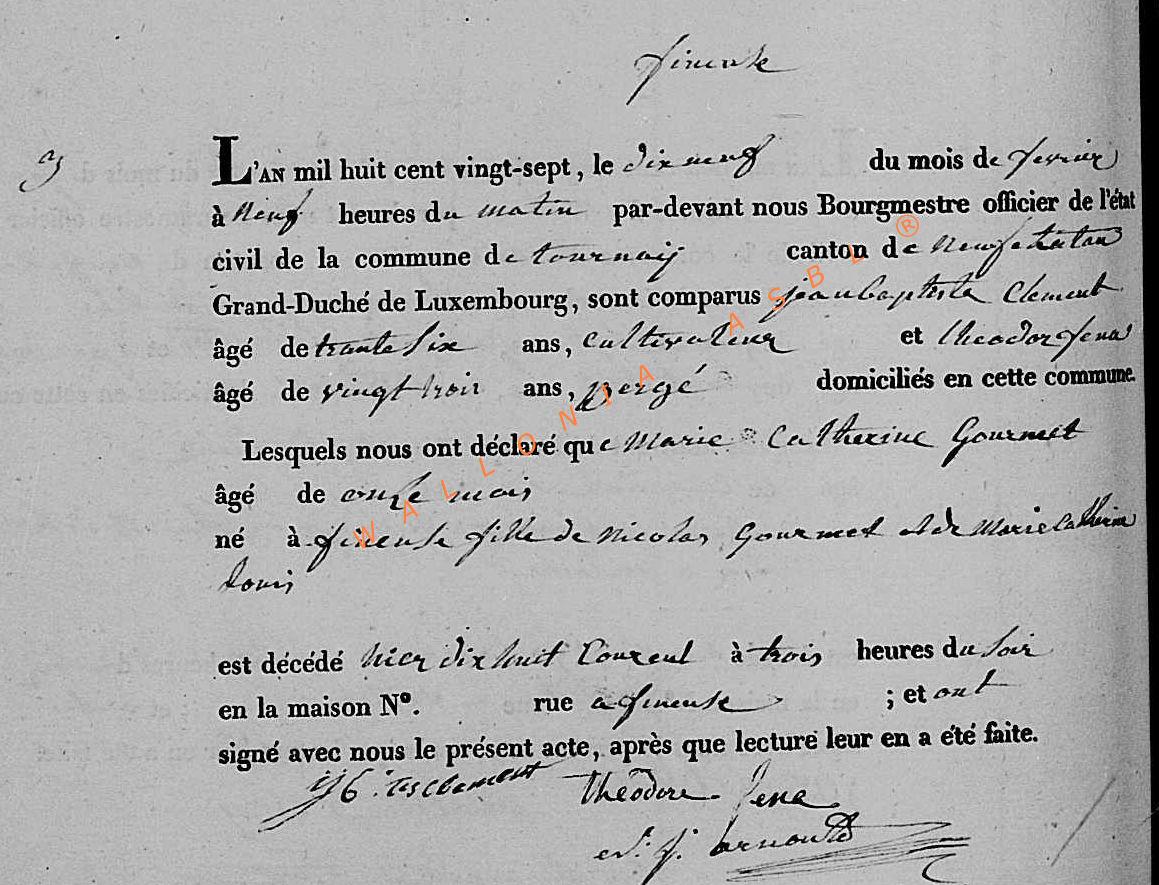 fineuse
3
L'AN mil huit cent vingt-sept, le dix neuf du mois de fevrier
à neuf heures du matin par-devant nous Bourgmestre officier de l'état
civil de la commune de tournay canton de neufchatau
Grand-Duché de Luxembourg, sont comparus jean baptiste Clement
âgé de trante six ans, Cultivateur et theodor jena
âgé de vingt troir ans, bergé domiciliés en cette commune.
Lesquels nous ont déclaré que Marie Catherine Gourmet
âgé de onze mois
né à fineuse fille de nicolas Gourmet et de Marie Catherine
Louis
est décédé hier dix huit Courent à trois heures du soir
en la maison N°. rue a fineuse ; et ont
signé avec nous le présent acte, après que lecture leur en a été faite.
Clement théodore jena
arnould
WALLONIA ASBL ®